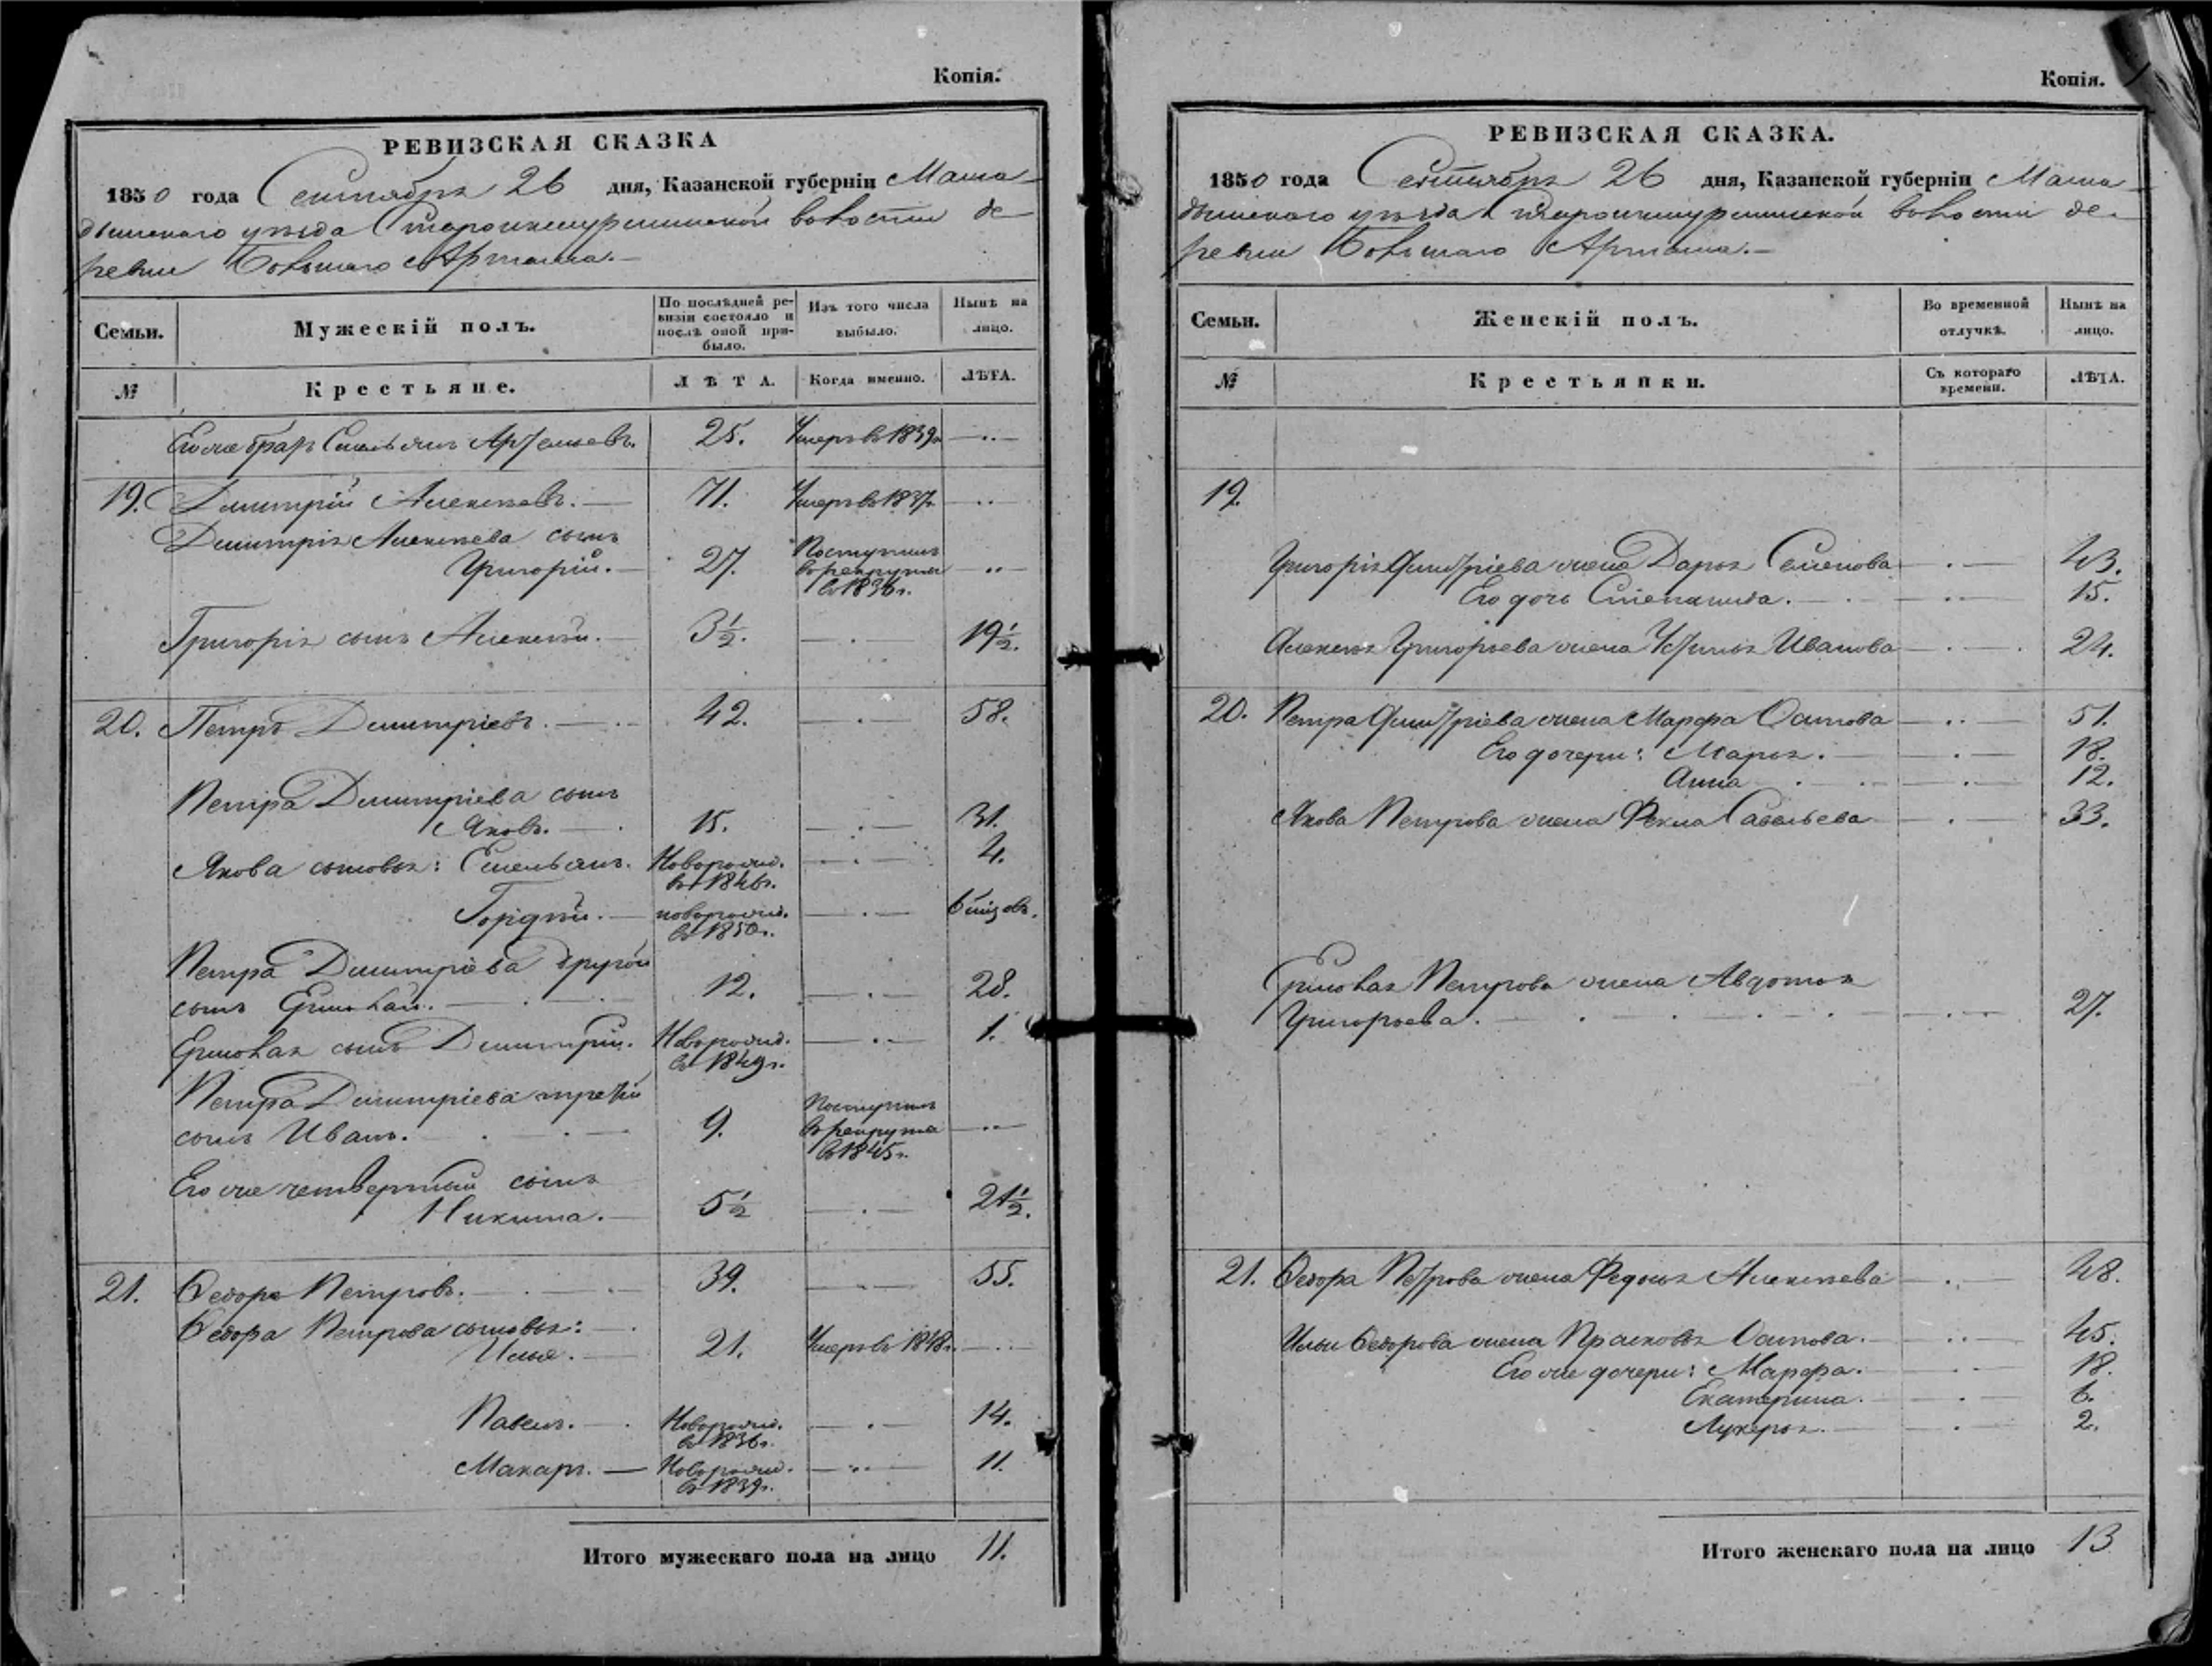 Копія.
РЕВИЗСКАЯ СКАЗКА
1850 года Сентября 26 дня, Казанской губерніи Мама-
дышскаго уѣзда Староикшурминской волости де-
ревни Большаго Арташа.—
Семьи.
Мужескій полъ.
По послѣдней ре-
визіи состояло и
послѣ оной при-
было.
Изъ того числа
выбыло.
Нынѣ на
лицо.
№
Крестьяне.
ЛѢТА.
Когда именно.
ЛѢТА.
Его же братъ Емельянъ Артемьевъ. 25. Умеръ въ 1839 г.
19. Дмитрій Алексѣевъ. 71. Умеръ въ 1837 г.
Дмитрія Алексѣева сынъ
Григорій. 27. Поступилъ
въ рекруты
въ 1836 г.
Григорія сынъ Алексѣй. 3½. 19½.
20. Петръ Дмитріевъ. 42. 58.
Петра Дмитріева сынъ
Яковъ. 15. 31.
Якова сыновья: Емельянъ. Новорожд. 4.
въ 1846 г.
Гордѣй. новорожд. 6 мѣзсов.
въ 1850 г.
Петра Дмитріева другой
сынъ Ермолай. 12. 28.
Ермолая сынъ Дмитрій. Новорожд. 1.
въ 1849 г.
Петра Дмитріева третій
сынъ Иванъ. 9. Поступилъ
въ рекруты
въ 1845 г.
Его же четвертый сынъ
Никита. 5½ 21½.
21. Ѳедоръ Петровъ. 39. 55.
Ѳедора Петрова сыновья:
Илья. 21. Умеръ въ 1848 г.
Павелъ. Новорожд. 14.
въ 1836 г.
Макаръ. Новорожд. 11.
въ 1839 г.
Итого мужескаго пола на лицо 11.
Копія.
РЕВИЗСКАЯ СКАЗКА.
1850 года Сентября 26 дня, Казанской губерніи Мама-
дышскаго уѣзда Староикшурминской волости де-
ревни Большаго Арташа.—
Семьи.
Женскій полъ.
Во временной
отлучкѣ.
Нынѣ на
лицо.
№
Крестьянки.
Съ котораго
времени.
ЛѢТА.
19.
Григорія Дмитріева жена Дарья Семенова 43.
Его дочь Степанида. 15.
Алексѣя Григорьева жена Устинья Иванова 24.
20. Петра Дмитріева жена Марфа Осипова 51.
Его дочери: Марья. 18.
Анна 12.
Якова Петрова жена Фекла Савельева 33.
Ермолая Петрова жена Авдотья
Григорьева. 27.
21. Ѳедора Петрова жена Федосья Алексѣева 48.
Ильи Ѳедорова жена Прасковья Осипова. 45.
Его же дочери: Марфа. 18.
Екатерина. 6.
Лукерья. 2.
Итого женскаго пола на лицо 13